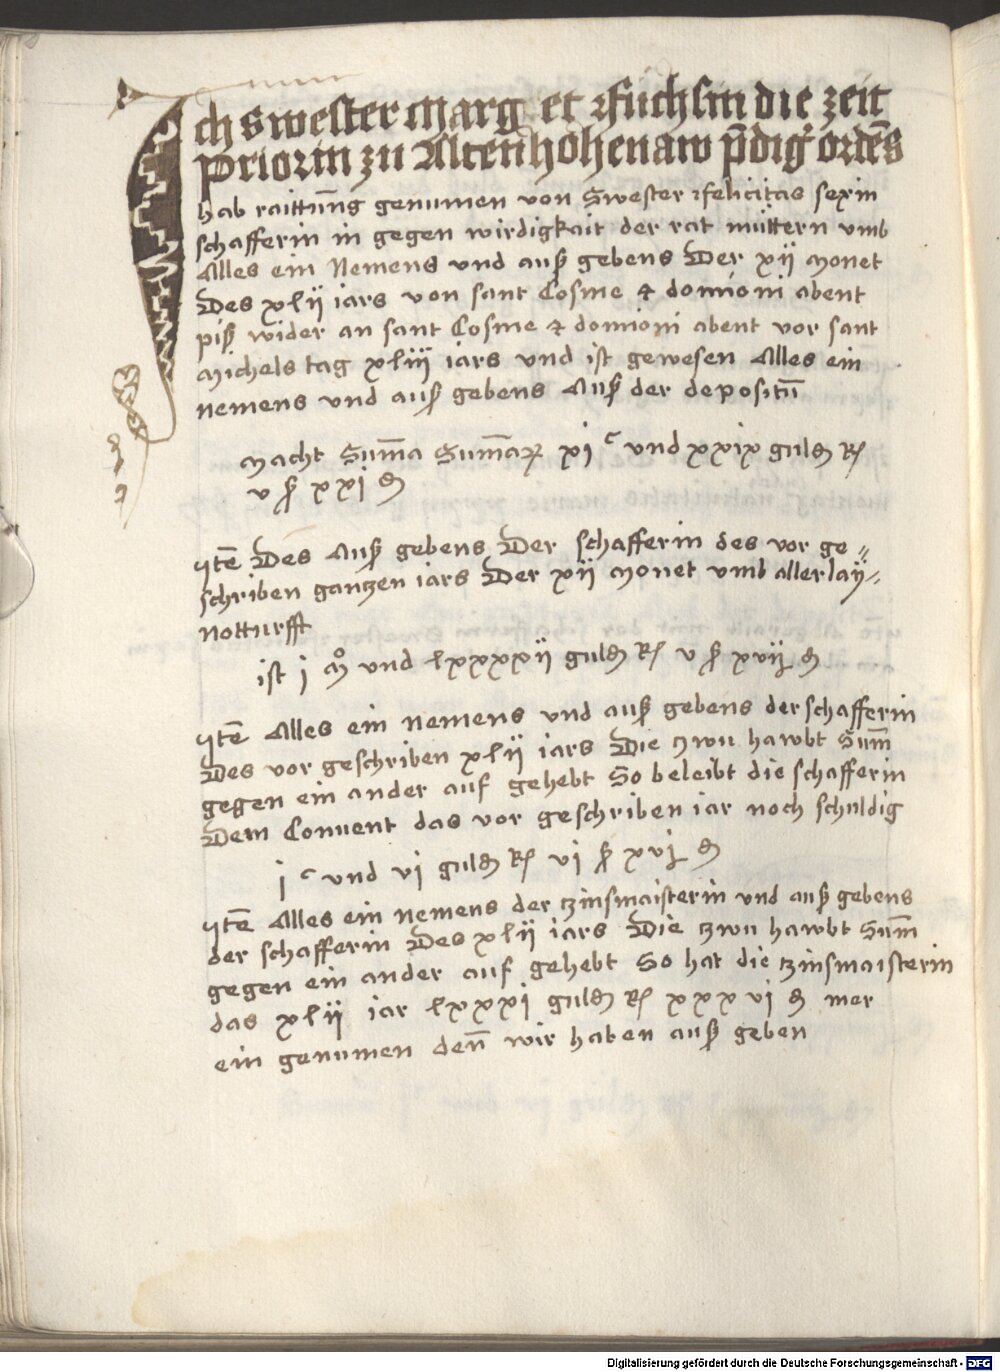 Ich swester Marg et Fuchsin die zeit
Priorin zu Altenhohenaw p̄dig᷒ ordēs
hab raittūng genumen von Swester Felicitas sexin
schafferin in gegen wirdigkait der rat müttern vmb
Alles ein Nemens vnd auß gebens Der xij Monet
Des xlij iars von sant Cosme & domioni abent
piß wider an sant Cosme & domioni abent vor sant
Michels tag xliij iars vnd ist gewesen Alles ein
nemens vnd auß gebens Auß der depositū
Macht Sum̄a Sum̄aꝝ xi c vnd xxix guld
v ß xxi ₰
Itē Des Auß gebens Der schafferin des vor ge⸗
schriben gantzen iars Der xij Monet vmb allerlaÿ⸗
Notturfft
ist j mͦ vnd lxxxxij guld v ß xvij ₰
Itē Alles ein nemens vnd auß gebens der schafferin
Des vor geschriben xlij iars Die zwu hawbt Sum̄
gegen ein ander auf gehebt So beleibt die schafferin
Dem Conuent das vor geschriben iar noch schuldig
j c vnd vi guld vi ß xvj ₰
Itē Alles ein nemens der zinsmaisterin vnd auß gebens
der schafferin Des xlij iars Die zwu hawbt Sum̄
gegen ein ander auf gehebt So hat die zinsmaisterin
das xlij iar lxxxxi guld xxxvi ₰ mer
ein genumen den̄ wir haten auß geben
Digitalisierung gefördert durch die Deutsche Forschungsgemeinschaft - DFG